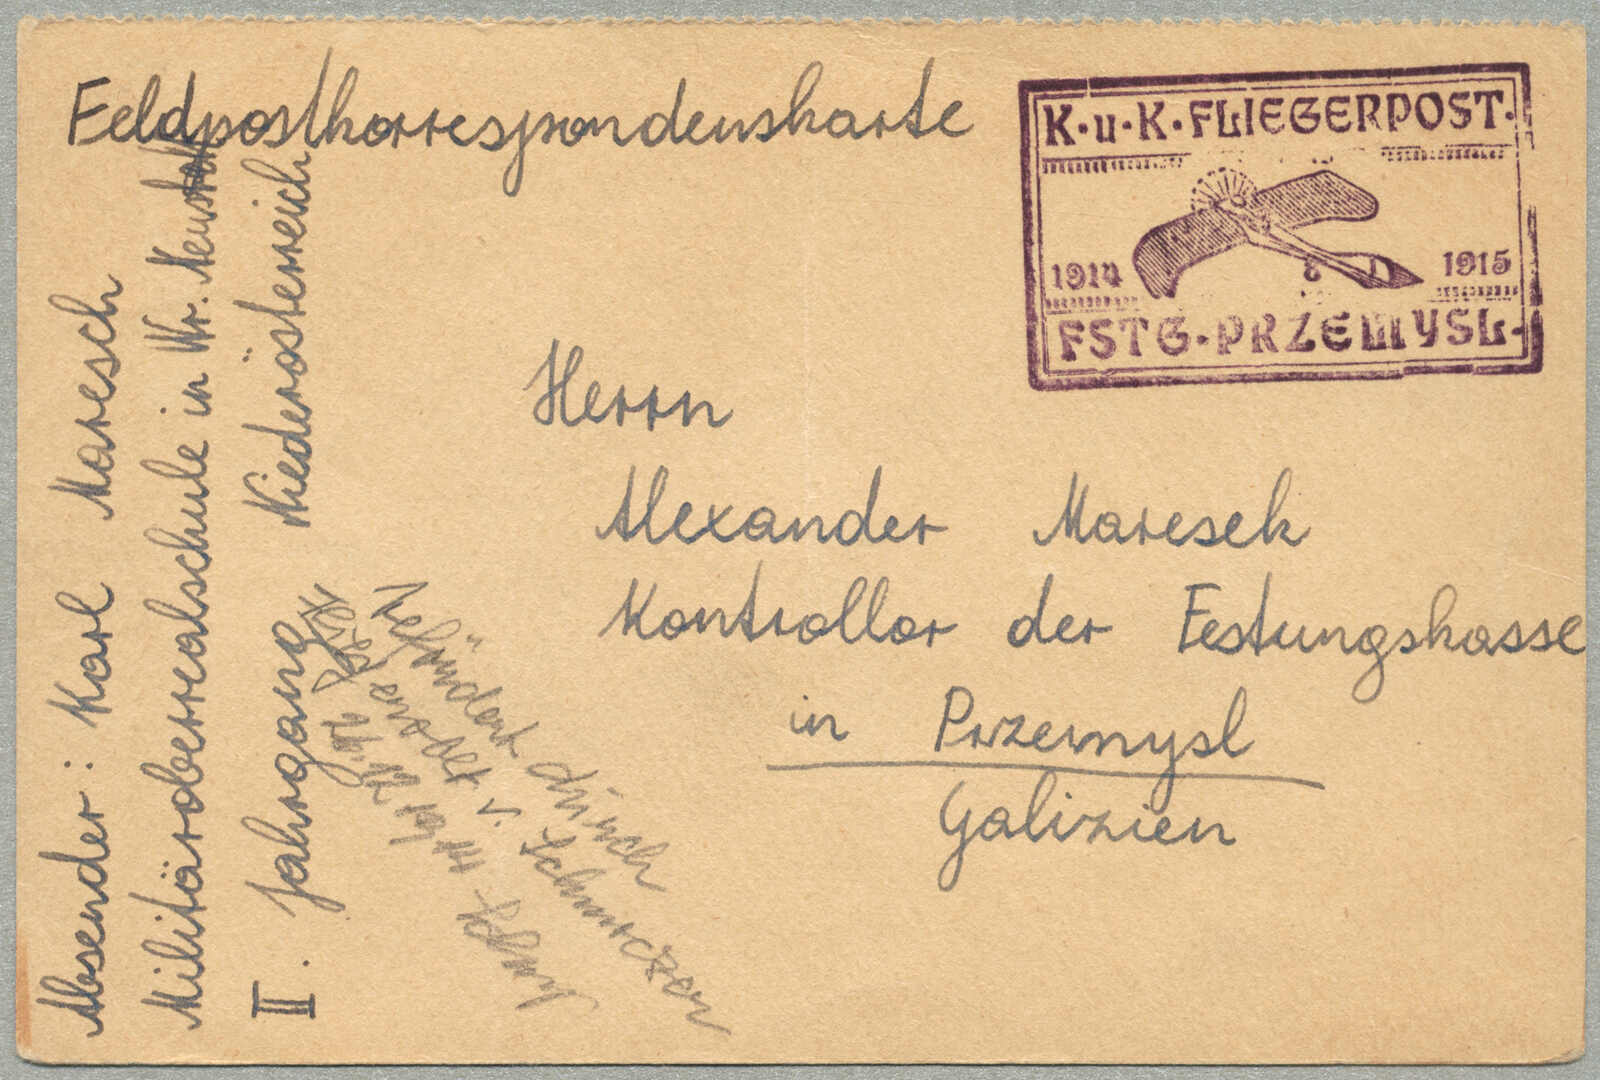 Feldpostkorrespondenskarte
K·u·K·FLIEGERPOST·
1914 1915
FSTG·PRZEMYSL·
Herrn
Alexander Maresch
Kontrollor der Festungskasse
in Przemysl
Galizien
Absender: Karl Maresch
Militäroberrealschule in Wr. Neustadt
II. Jahrgang Niederösterreich
durch
v.